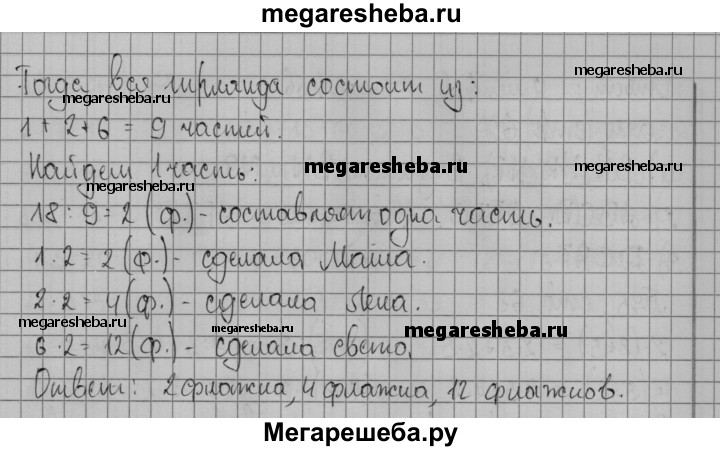 megaresheba.ru
Тогда вся гирлянда состоит из:
megaresheba.ru
megaresheba.ru
1 + 2 + 6 = 9 частей.
Найдем 1 часть:
megaresheba.ru
megaresheba.ru
megaresheba.ru
18 : 9 = 2 (ф.) - составляет одна часть.
1 · 2 = 2 (ф.) - сделала Маша.
2 · 2 = 4 (ф.) - сделала Лена.
megaresheba.ru
megaresheba.ru
megaresheba.ru
6 · 2 = 12 (ф.) - сделала Света.
Ответ: 2 флажка, 4 флажка, 12 флажков.
Мегарешеба.ру